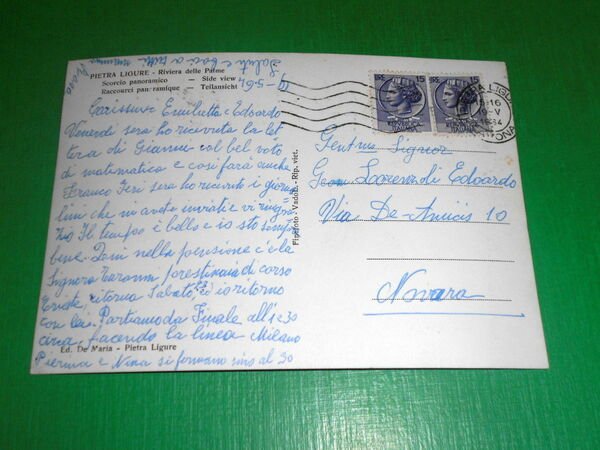 Saluti e baci a tutti
Rosa
19-5-64
PIETRA LIGURE - Riviera delle Palme
Scorcio panoramico - Side view
Raccourci panoramique - Teilansicht
Carissimi Emilietta e Edoardo
Venerdi sera ho ricevuta la let
tera di Gianni col bel voto
di matematica e così farà anche
Franco Ieri sera ho ricevuto i giorna
lini che mi avete inviati e vi ringra
zio Il tempo è bello e io sto sempre
bene. Qui nella pensione c'è la
Signora prestinaia di corso
ritorna Sabato, e io ritorno
con lei. Partiamo da Finale all'1230
circa, facendo la linea Milano
Pierina e Nina si fermano sino al 30
Ed. De Maria - Pietra Ligure
Fipefoto - Vador. - Rip. viet.
LIRE 15
LIRE 15
PIETRA LIGURE
15-16
19-V
1964
Gentmo Signor
Geom. Lorenzo di Edoardo
Via De-Amicis 10
Novara